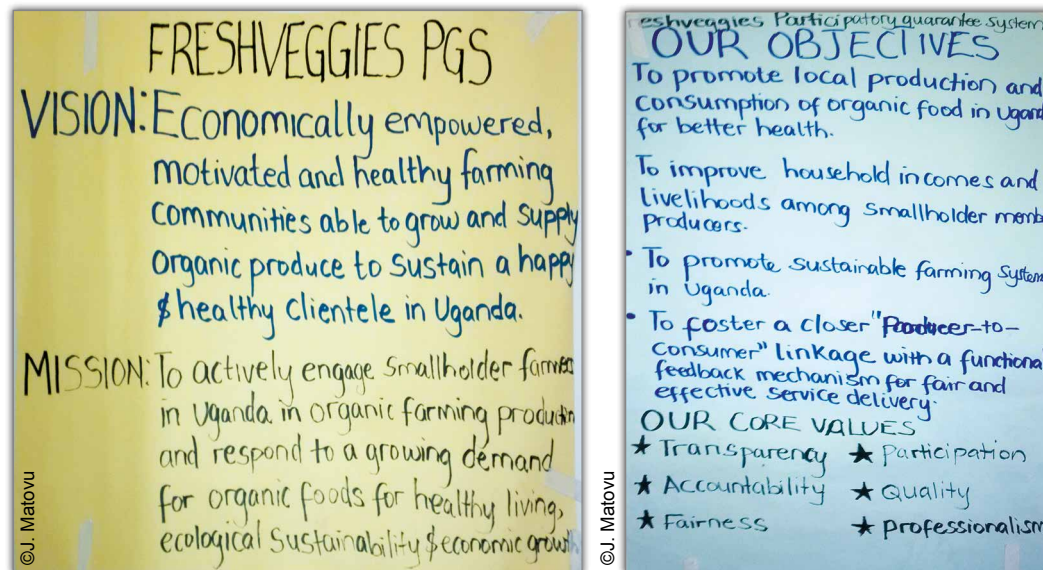 FRESHVEGGIES PGS
VISION: Economically empowered,
motivated and healthy farming
communities able to grow and supply
Organic produce to sustain a happy
& healthy clientele in Uganda.
MISSION: To actively engage smallholder farmers
in Uganda in organic farming production
and respond to a growing demand
for organic foods for healthy living,
ecological sustainability & economic growth
©J. Matovu
eshveggies Participatory guarantee System
OUR OBJECTIVES
To promote local production and
consumption of organic food in Ugand
for better health.
To improve household incomes and
Livelihoods among smallholder memb
producers.
• To promote sustainable farming system
in Uganda.
• To foster a closer "Producer-to-
Consumer" linkage with a functiona
feedback mechanism for fair and
effective service delivery.
OUR CORE VALUES
★ Transparency ★ Participation
★ Accountability ★ Quality
★ Fairness ★ professionalism
©J. Matovu